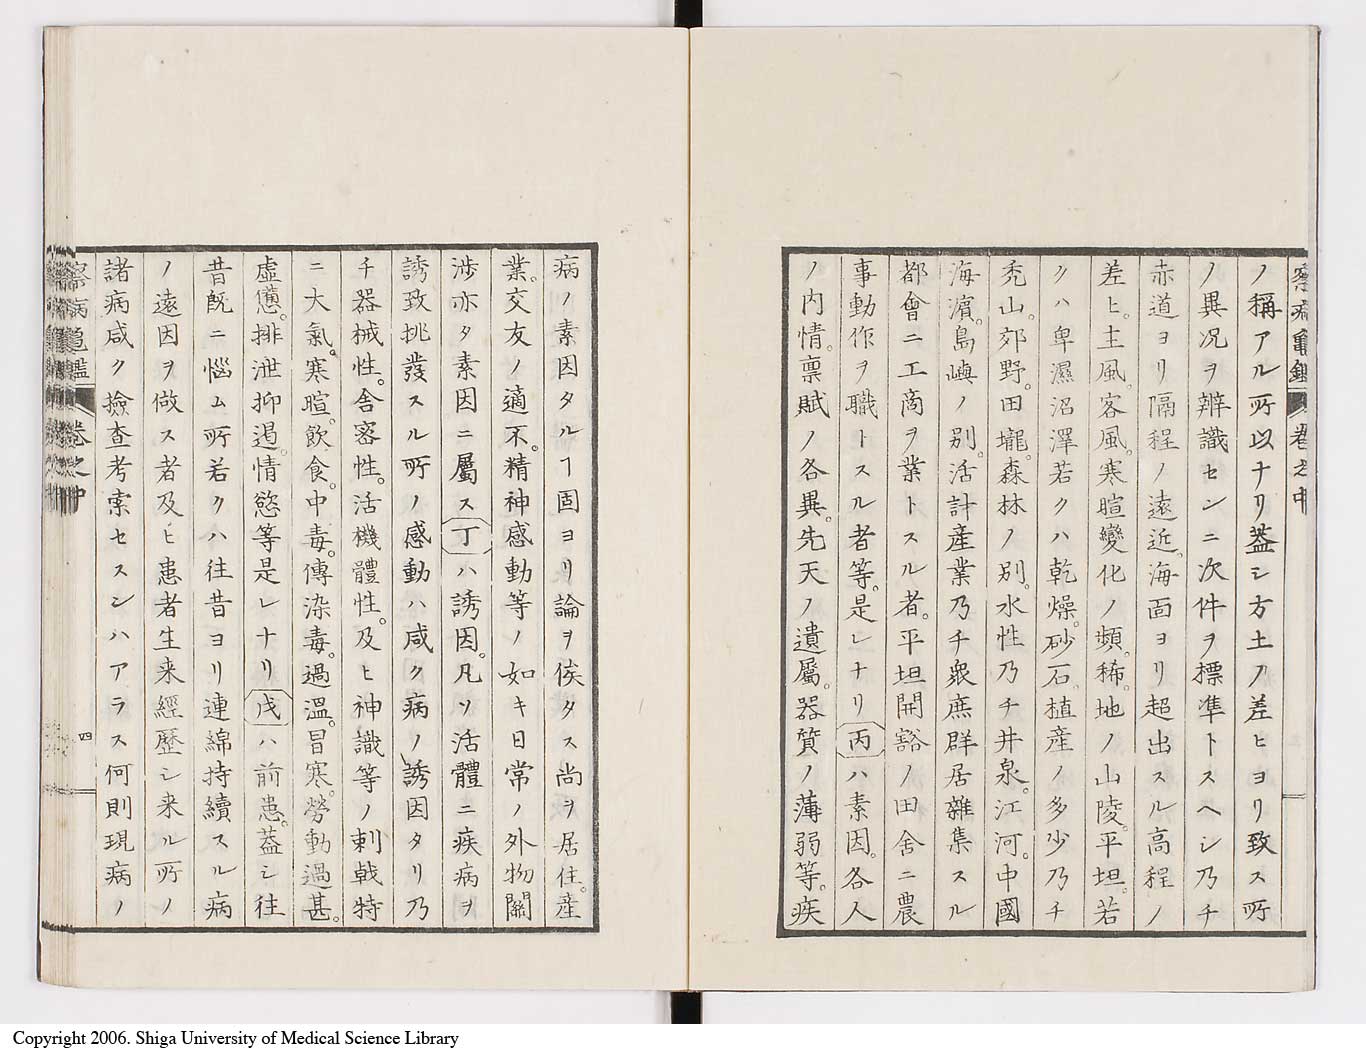 察病龜鑑 卷之中
ノ稱アル所以ナリ蓋シ方土ノ差ヒヨリ致ス所
ノ異况ヲ辨識センニ次件ヲ標凖トスヘシ乃チ
赤道ヨリ隔程ノ遠近。海面ヨリ超出スル高程ノ
差ヒ。主風。客風。寒暄變化ノ頻。稀。地ノ山陵。平坦。若
クハ卑濕沼澤若クハ乾燥。砂石。植産ノ多少乃チ
禿山。郊野。田壠。森林ノ別。水性乃チ井泉。江河。中國
海濵。島嶼ノ別。活計産業乃チ衆庶群居雜集スル
都會ニ工商ヲ業トスル者。平坦開豁ノ田舎ニ農
事動作ヲ職トスル者等。是レナリ丙ハ素因。各人
ノ内情。禀賦ノ各異。先天ノ遺屬。器質ノ薄弱等。疾
病ノ素因タルヿ固ヨリ論ヲ俟タス尚ヲ居住。産
業。交友ノ適不。精神感動等ノ如キ日常ノ外物關
涉亦タ素因ニ屬ス丁ハ誘因。凡ソ活體ニ疾病ヲ
誘致挑發スル所ノ感動ハ咸ク病ノ誘因タリ乃
チ器械性。舎密性。活機體性。及ヒ神識等ノ刺戟特
ニ大氣。寒暄。飲食。中毒。傳染毒。過溫。冒寒。勞動過甚。
虚憊。排泄抑遏。情慾等是レナリ戊ハ前患。蓋シ往
昔既ニ惱ム所若クハ往昔ヨリ連綿持續スル病
ノ遠因ヲ做ス者及ヒ患者生来經歷シ来ル所ノ
諸病咸ク撿査考索セスンハアラス何則現病ノ
察病龜鑑 卷之中
四
Copyright 2006. Shiga University of Medical Science Library